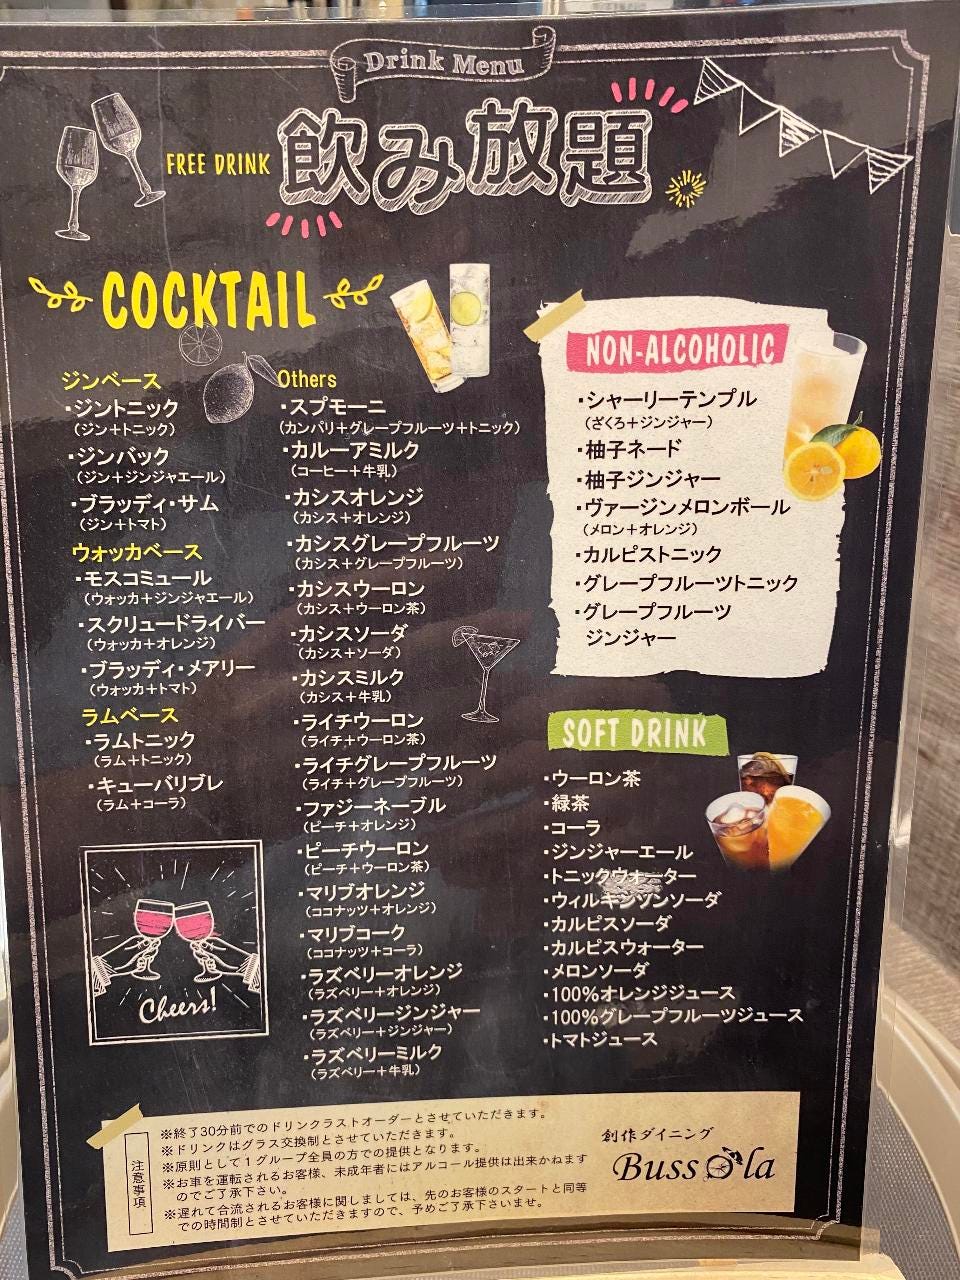 Drink Menu
FREE DRINK 飲み放題
COCKTAIL
ジンベース
・ジントニック
（ジン＋トニック）
・ジンバック
（ジン＋ジンジャエール）
・ブラッディ・サム
（ジン＋トマト）
ウォッカベース
・モスコミュール
（ウォッカ＋ジンジャエール）
・スクリュードライバー
（ウォッカ＋オレンジ）
・ブラッディ・メアリー
（ウォッカ＋トマト）
ラムベース
・ラムトニック
（ラム＋トニック）
・キューバリブレ
（ラム＋コーラ）
Cheers!
Others
・スプモーニ
（カンパリ＋グレープフルーツ＋トニック）
・カルーアミルク
（コーヒー＋牛乳）
・カシスオレンジ
（カシス＋オレンジ）
・カシスグレープフルーツ
（カシス＋グレープフルーツ）
・カシスウーロン
（カシス＋ウーロン茶）
・カシスソーダ
（カシス＋ソーダ）
・カシスミルク
（カシス＋牛乳）
・ライチウーロン
（ライチ＋ウーロン茶）
・ライチグレープフルーツ
（ライチ＋グレープフルーツ）
・ファジーネーブル
（ピーチ＋オレンジ）
・ピーチウーロン
（ピーチ＋ウーロン茶）
・マリブオレンジ
（ココナッツ＋オレンジ）
・マリブコーク
（ココナッツ＋コーラ）
・ラズベリーオレンジ
（ラズベリー＋オレンジ）
・ラズベリージンジャー
（ラズベリー＋ジンジャー）
・ラズベリーミルク
（ラズベリー＋牛乳）
NON-ALCOHOLIC
・シャーリーテンプル
（ざくろ＋ジンジャー）
・柚子ネード
・柚子ジンジャー
・ヴァージンメロンボール
（メロン＋オレンジ）
・カルピストニック
・グレープフルーツトニック
・グレープフルーツ
ジンジャー
SOFT DRINK
・ウーロン茶
・緑茶
・コーラ
・ジンジャーエール
・トニックウォーター
・ウィルキンソンソーダ
・カルピスソーダ
・カルピスウォーター
・メロンソーダ
・100％オレンジジュース
・100％グレープフルーツジュース
・トマトジュース
注意事項
※終了30分前でのドリンクラストオーダーとさせていただきます。
※ドリンクはグラス交換制とさせていただきます。
※原則として１グループ全員の方での提供となります。
※お車を運転されるお客様、未成年者にはアルコール提供は出来かねます
のでご了承下さい。
※遅れて合流されるお客様に関しましては、先のお客様のスタートと同等
での時間制とさせていただきますので、予めご了承下さいませ。
創作ダイニング
Bussola